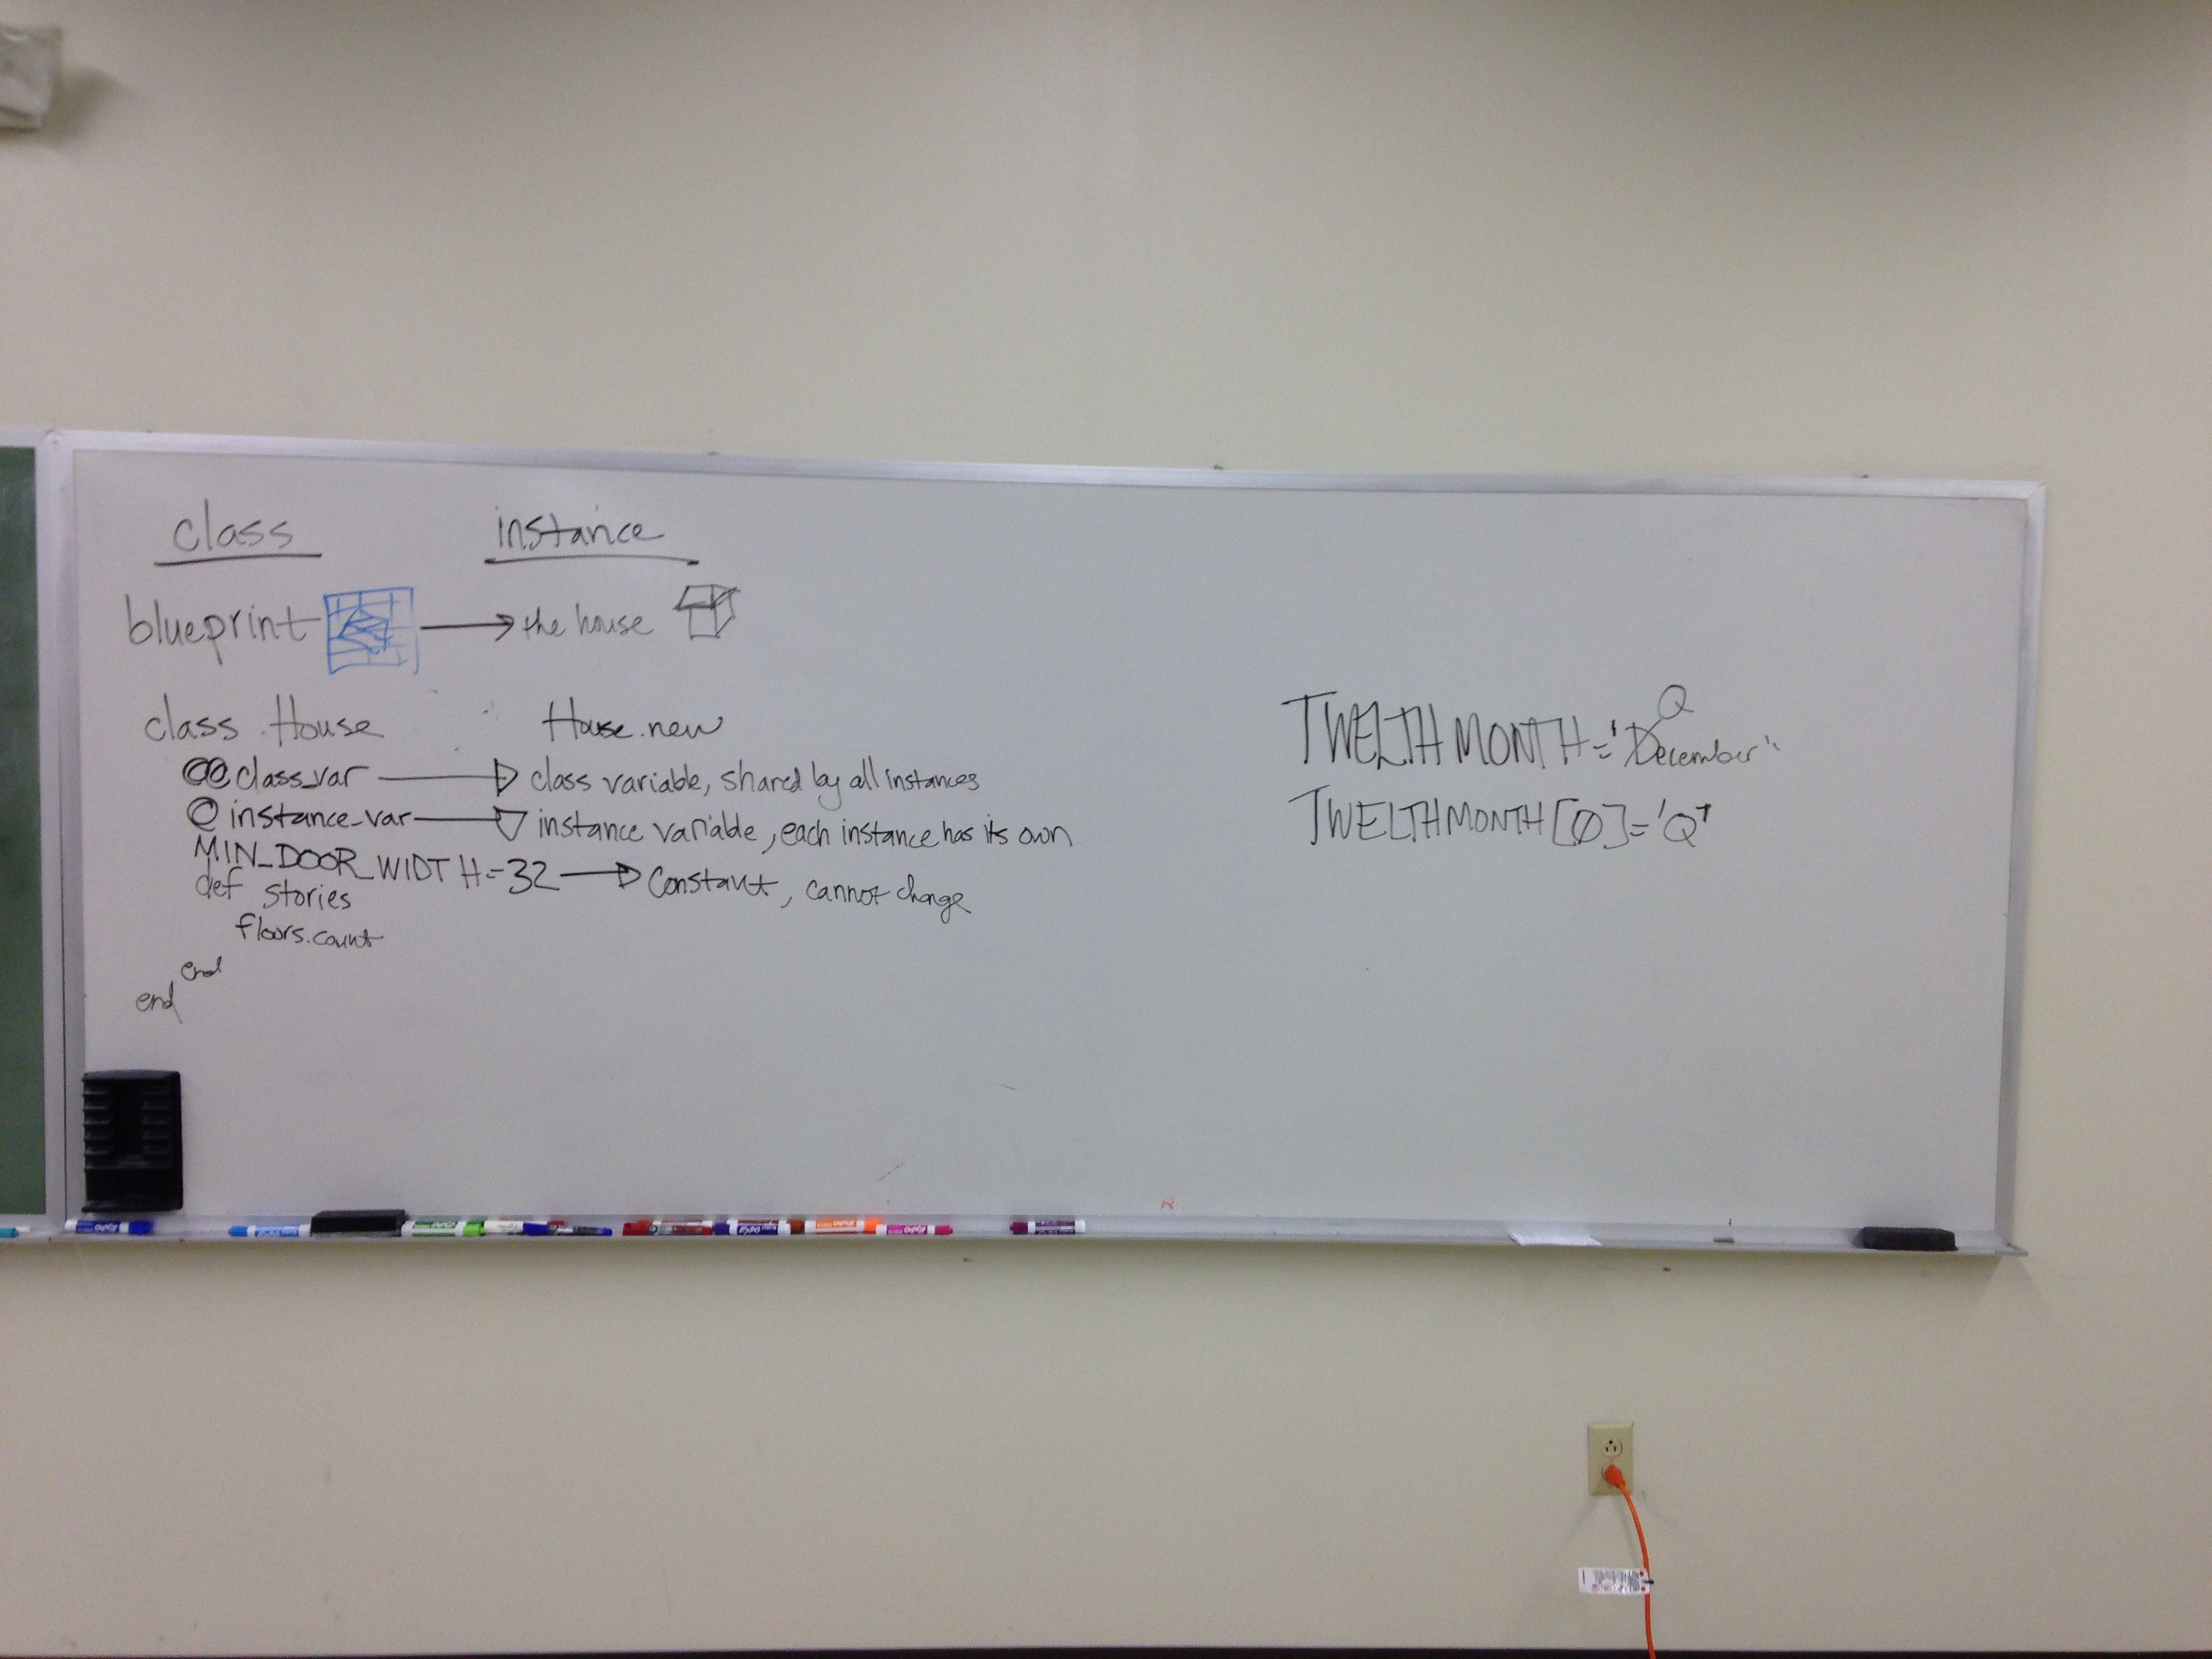 class instance
blueprint the house
class House House.new
@@class_var class variable, shared by all instances
@instance_var instance variable, each instance has its own
MIN_DOOR_WIDTH=32 Constant, cannot change
def stories
floors.count
end
end
Q
TWELTHMONTH='December"
TWELTHMONTH[0]='Q'
EXPO